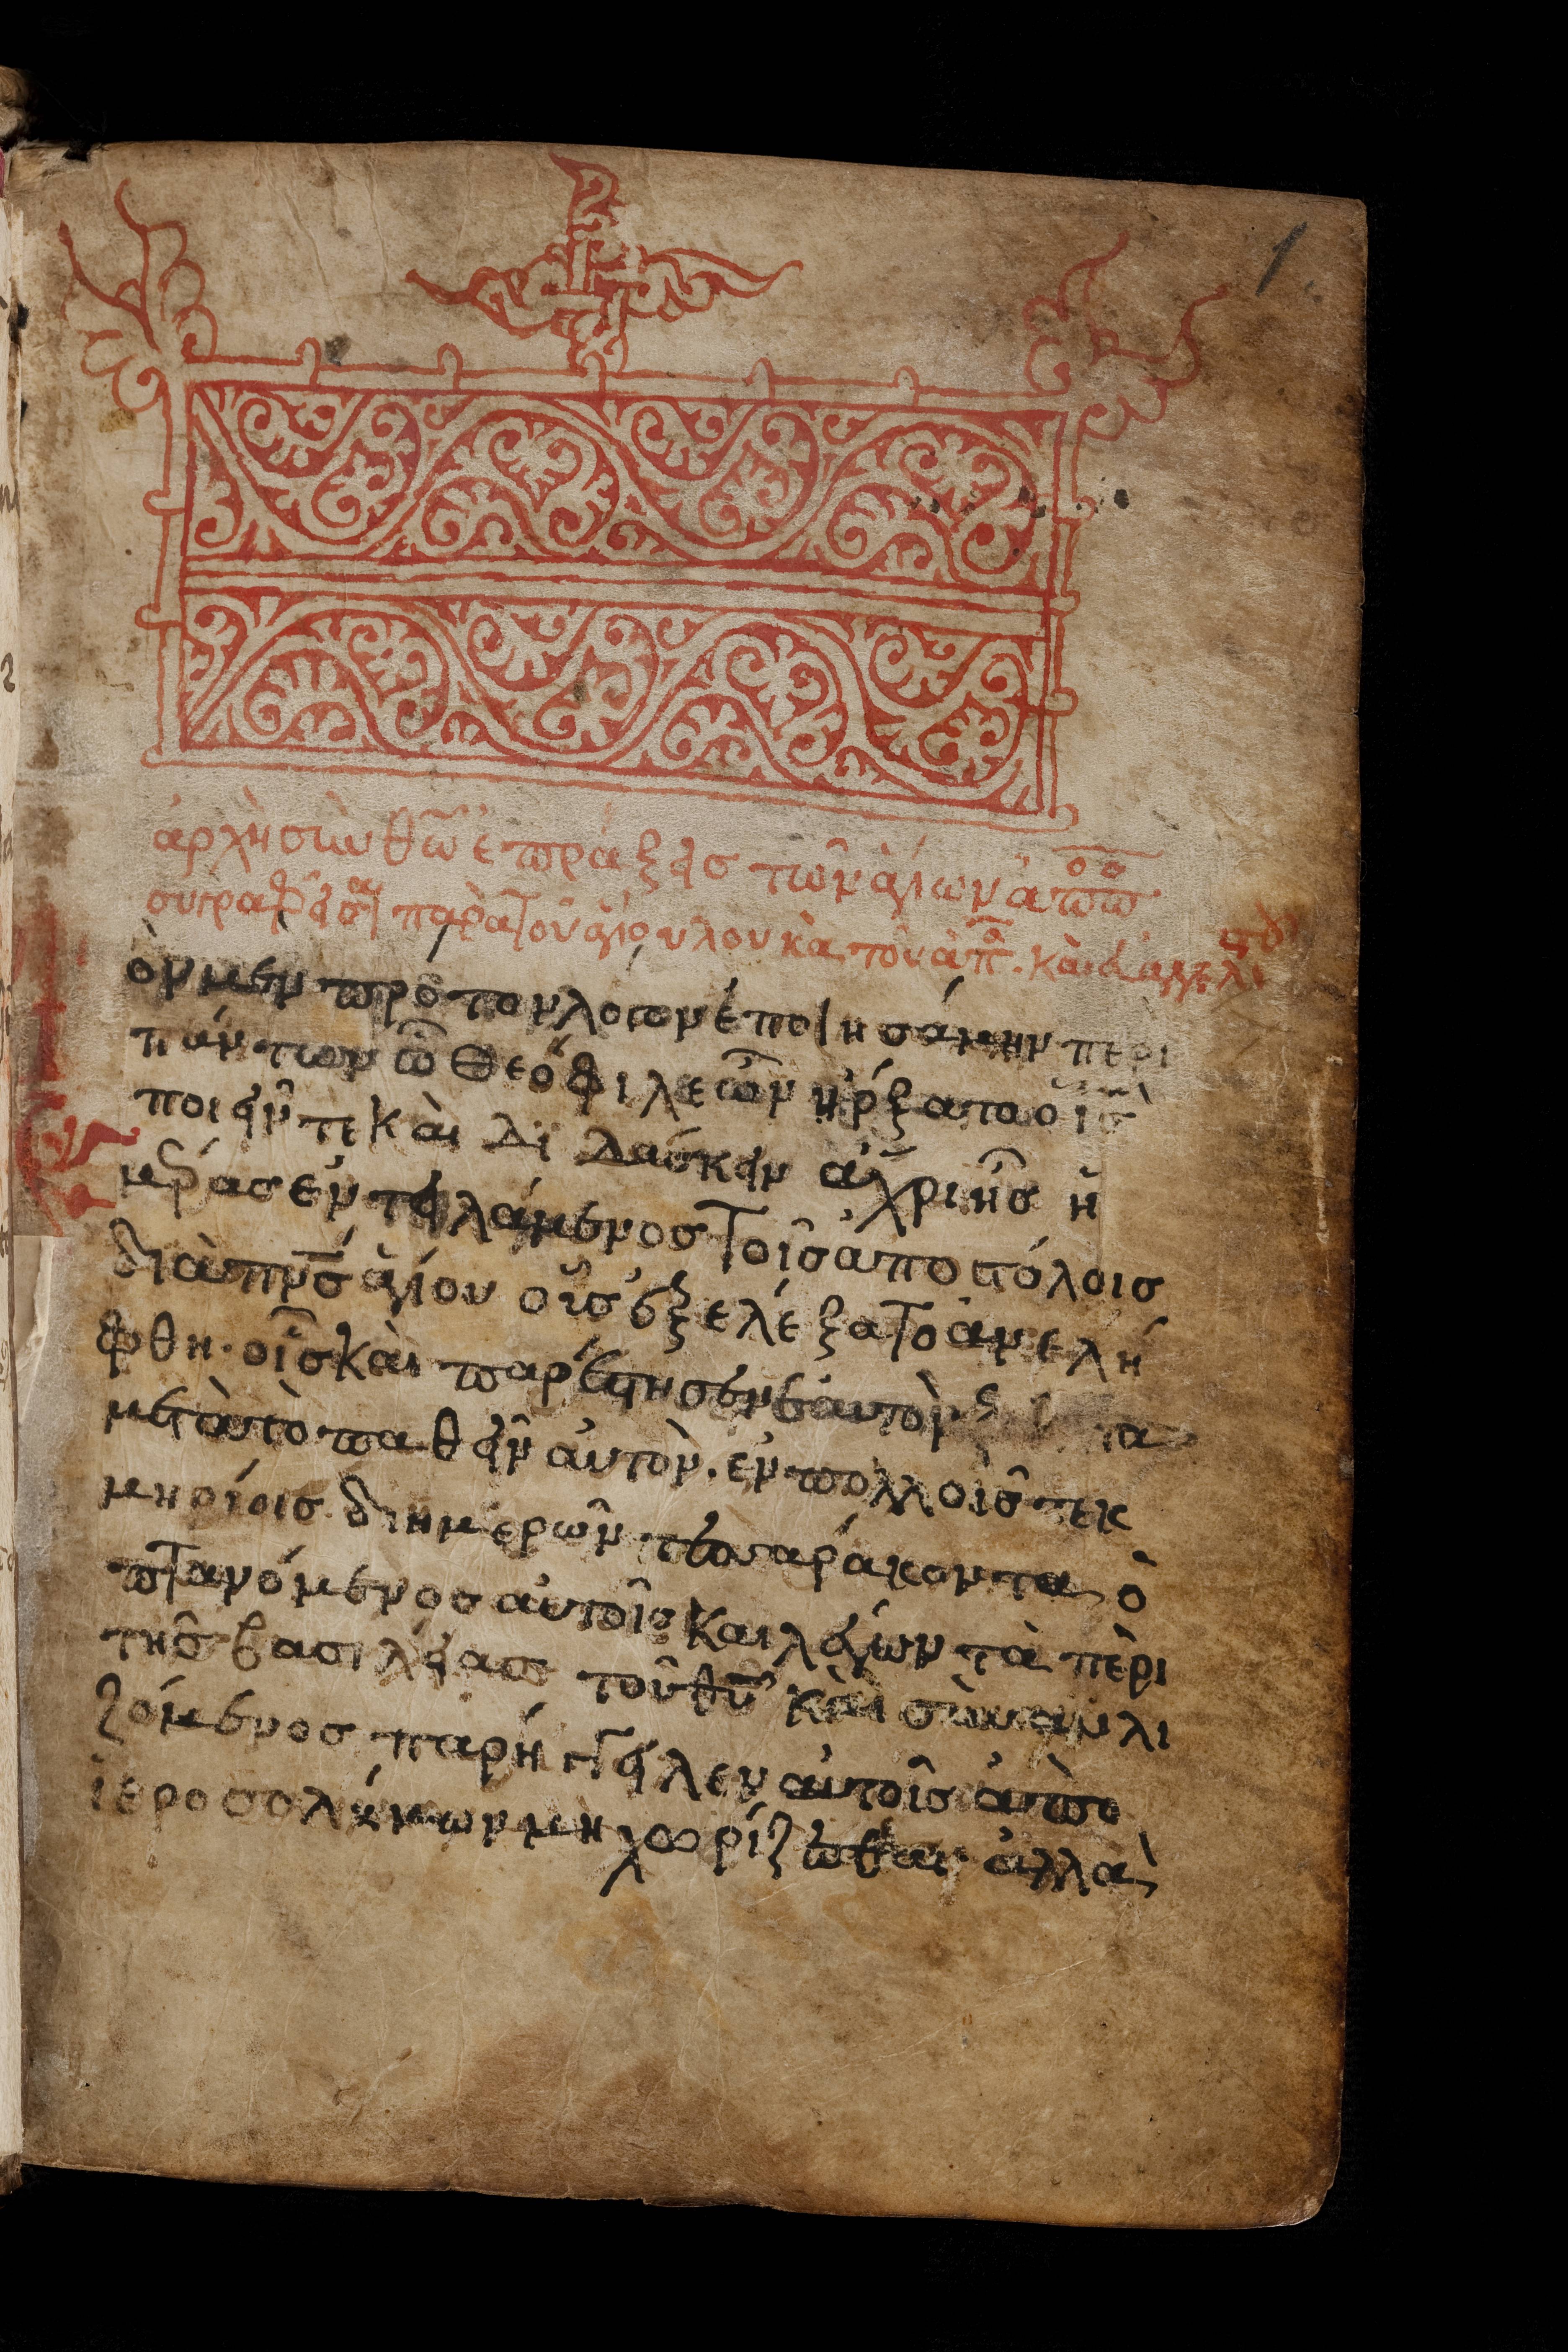 1
ἀρχὴ σὺν θῶ ἑ πράξεις τῶν ἁγίων ἀποο
συγραφεῖσαι παρὰ τοῦ ἁγίου λουκᾶ τοῦ ἀπο. καὶ εὐαγγελι
ὸν μεν πρῶτον λόγον ἐποιησάμην περι
πάντων ὦ Θεόφιλε ὧν ἤρξατο ὁ ις
ποιεῖν τε καὶ διδάσκειν ἄχρι ἧς ἡ
μέρας ἐντειλάμενος τοῖς ἀποστόλοις
διὰ πνς ἁγίου οὓς ἐξελέξατο ἀνελή
φθη. οἷς καὶ παρέστησεν ἑαυτὸν
μετὰ τὸ παθεῖν αὐτὸν. ἐν πολλοῖς τεκ
μηρίοις. δι ἡμερῶν τεσσαράκοντα ὀ
πτανόμενος αὐτοῖς και λέγων τὰ πὲρι
τῆς βασιλείας τοῦ θυ καὶ συναυλι
ζόμενος παρήγγειλεν αὐτοῖς ἀπὸ
ἱεροσολύμων μὴ χωρίζεσθαι ἀλλὰ